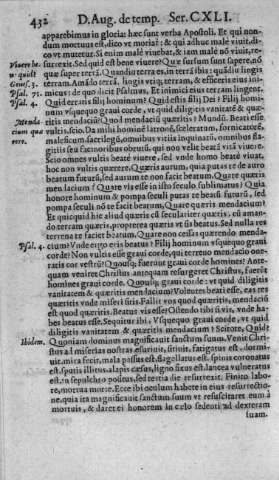 432 D. Aug. de temp. Ser. CXLI.
apparebimus in gloria: hæc sunt verba Apostoli. Et qui non-
dum mortuus est, dico vt moria: & qui adhuc malè viuit, di-
co vt mutetur. Si enim malè viuebat, & iam malè nõ viuit, re-
Viuere be surrexit. Sed quid est bene viuere? Quæ sursum sunt sapere, nõ
quæ super terrã. Quandiu terra es, in terrã ibis: quãdiu lingis
Gene. 3. terram. Amãdo terrã, lingis vtiq; terram, & efficeris eius ini-
Psal. 71. micus: de quo dicit Psalmus, Et inimici eius terram lingent.
Psal. 4. Quid eratis filij hominum? Quid estis filij Dei? Filij homi-
num vsquequo graui corde, vt quid diligitis vanitatẽ & quæ-
Menda ritis mendacium? Quod mendacium quæritis? Mundũ. Beati esse
cium quæ vultis, scio. Da mihi hominẽ latronẽ, sceleratum, fornicatorẽ,
rere. maleficum, sacrilegũ, omnibus vitiis inquinatũ, omnibus fla-
gitiis seu facinoribus obrutũ, qui non velit beatã vitã viuere.
Scio omnes vultis beatè viuere, sed vnde homo beatè viuat,
hoc non vultis quærere. Quæris aurum, quia putas te de auro
beatum futurũ, sed aurum te non facit beatum. Quare quæris
mendacium? Quare vis esse in isto sæculo sublimatus? Quia
honore hominum & pompa seculi putas te beatũ futurũ, sed
pompa seculi nõ te facit beatum. Quare quæris mendacium?
Et quicquid hic aliud quæris cũ seculariter quæris, cũ aman-
do terram quæris, propterea quæris vt sis beatus. Sed nulla res
terrena te facit beatum. Quare non cessas quærendo menda-
Psal. 4. cium? Vnde ergo eris beatus? Filij hominum vsquequo graui
corde? Non vultis esse graui corde, qui terreno mendacio one-
ratis cor vestrũ? Quousq; fuerunt graui corde homines? Ante-
quam veniret Christus antequam resurgeret Christus, fuerũt
homines graui corde. Quousq; graui corde: vt quid diligitis
vanitatem & quæritis mendacium? Volentes beati esse, eas res
quæritis vnde miseri sitis. Fallit vos quod quæritis, mendaciũ
est quod quæritis. Beatus vis esse? Ostendo tibi si vis, vnde ha-
bes beatus esse. Sequitur ibi, Vsquequo graui corde, vt quid
diligitis vanitatem & quæritis mendacium? Scitote. Quid?
Ibidem. Quoniam dominus magnificauit sanctum suum. Venit Chri-
stus ad miserias nostras: esuriuit, sitiuit, fatigatus est, dormi-
uit, mira fecit, mala passus est, flagellatus est, spinis coronatus
est, sputis illitus, alapis cæsus, ligno fixus est, lancea vulneratus
est, in sepulchro positus, sed tertia die resurrexit. Finito labo-
re, mortua morte. Ecce ibi oculum habete in eius resurrectio-
ne, quia ita magnificauit sanctum suum vt resuscitaret eum à
mortuis, & daret ei honorem in cælo sedendi ad dexteram
suam.